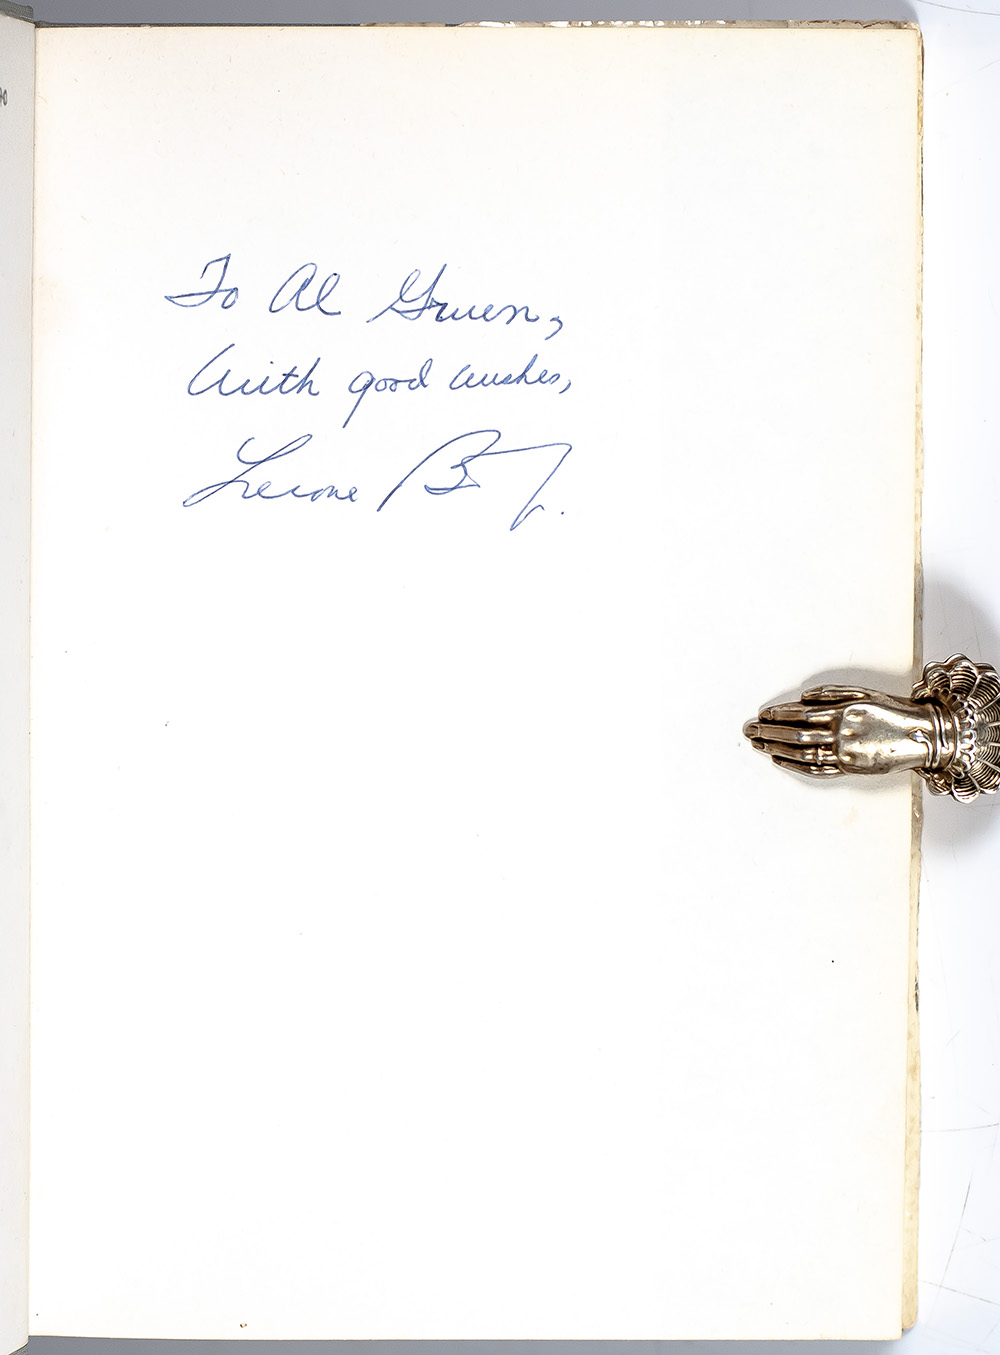 To Al Gruen,
With good wishes,
Lerone